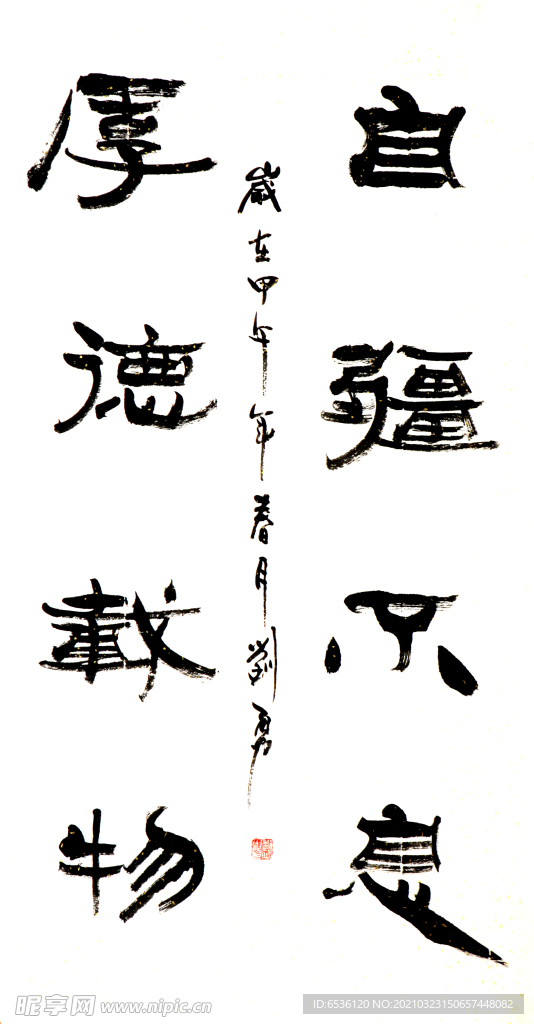 自彊不息
厚德載物
歲在甲午年春月劉勇
昵享网 www.nipic.cn
ID:6536120 NO:20210323150657448082